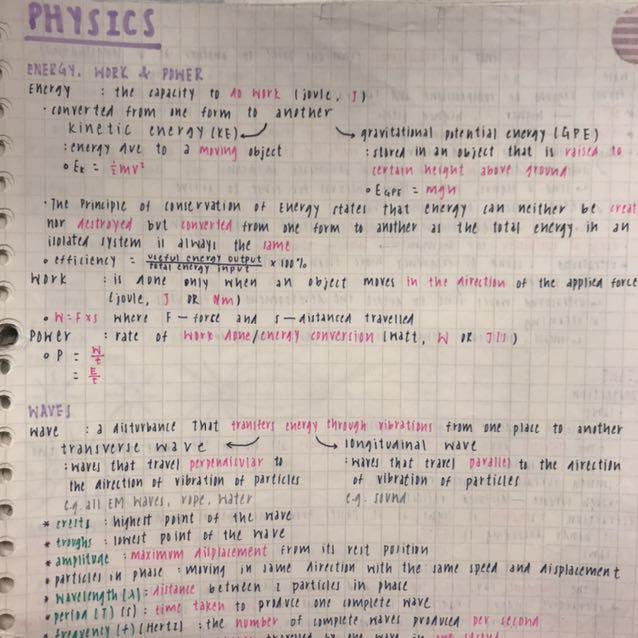 PHYSICS
ENERGY, WORK & POWER
Energy : the capacity to do work (joule, J)
• converted from one form to another
kinetic energy (KE) gravitational potential energy (GPE)
: energy due to a moving object : stored in an object that is raised to
certain height above ground
• Ek = ½mv²
• EGPE = mgh
• The Principle of conservation of Energy states that energy can neither be creat
nor destroyed but converted from one form to another as the total energy in an
isolated system is always the same
• efficiency = useful energy output / total energy input × 100%
Work : is done only when an object moves in the direction of the applied force
(joule, J OR Nm)
• W = F × s where F - force and s - distanced travelled
Power : rate of work done/energy conversion (Watt, W OR J/s)
• P = W/t
= E/t
WAVES
Wave : a disturbance that transfers energy through vibrations from one place to another
transverse wave longitudinal wave
: waves that travel perpendicular to : waves that travel parallel to the direction
the direction of vibration of particles of vibration of particles
e.g. all EM waves, rope, water e.g. sound
* crests : highest point of the wave
* troughs : lowest point of the wave
* amplitude : maximum displacement from its rest position
* particles in phase : moving in same direction with the same speed and displacement
* wavelength (λ) : distance between 2 particles in phase
* period (T) (s) : time taken to produce one complete wave
* frequency (f) (Hertz) : the number of complete waves produced per second
travelled by one wave in one second